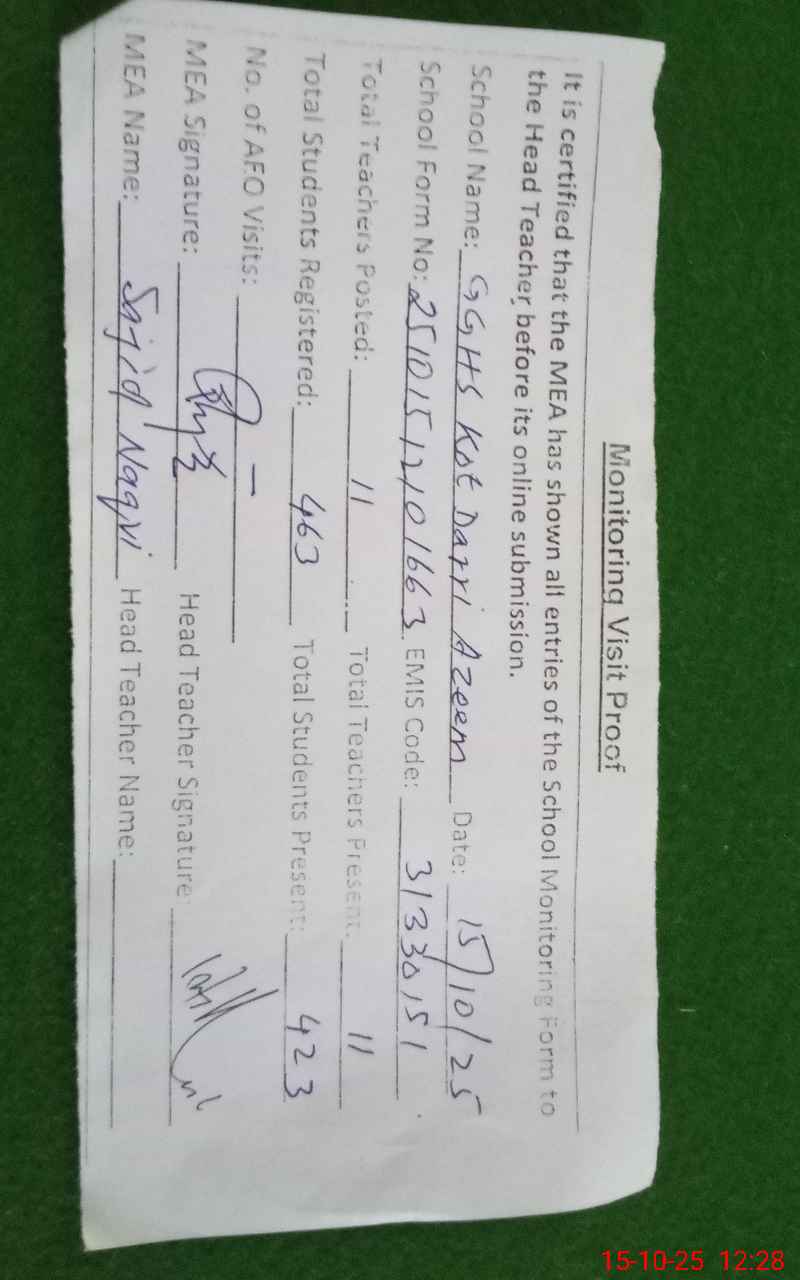 Monitoring Visit Proof
It is certified that the MEA has shown all entries of the School Monitoring Form to
the Head Teacher before its online submission.
School Name: GGHS Kot Darri Azeem Date: 15/10/25
School Form No: 25101512101663 EMIS Code: 31330151
Total Teachers Posted: 11 Total Teachers Present: 11
Total Students Registered: 463 Total Students Present: 423
No. of AEO Visits: —
MEA Signature: Head Teacher Signature:
MEA Name: Sajid Naqvi Head Teacher Name:
15-10-25 12:28